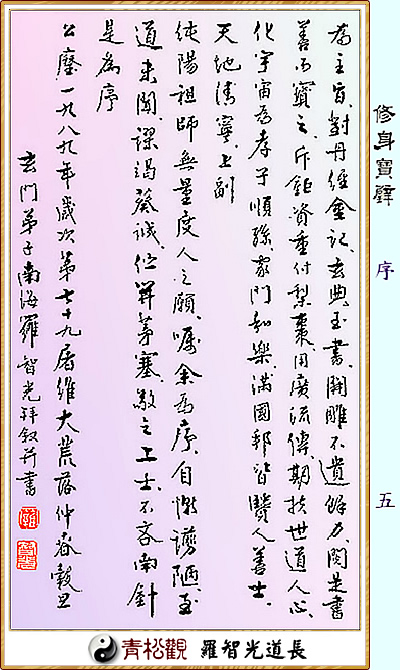 修身寶璧 序 五
為主旨。對丹經金記、玄典玉書、開雕不遺餘力。閱是書
善而寶之。斥鉅資重付梨棗。用廣流傳。期扶世道人心。
化宇宙為孝子順孫。家門和樂。滿國郡皆賢人善士。
天地清寧。上副
純陽祖師無量度人之願。囑余為序。自慚譾陋。至
道未聞。謬竭葵誠。但開茅塞。敬之上士。不吝南針
是為序
公曆一九八九年歲次第七十九屠維大荒落仲春穀旦
玄門弟子南海羅智光拜敘并書
青松觀 羅智光道長